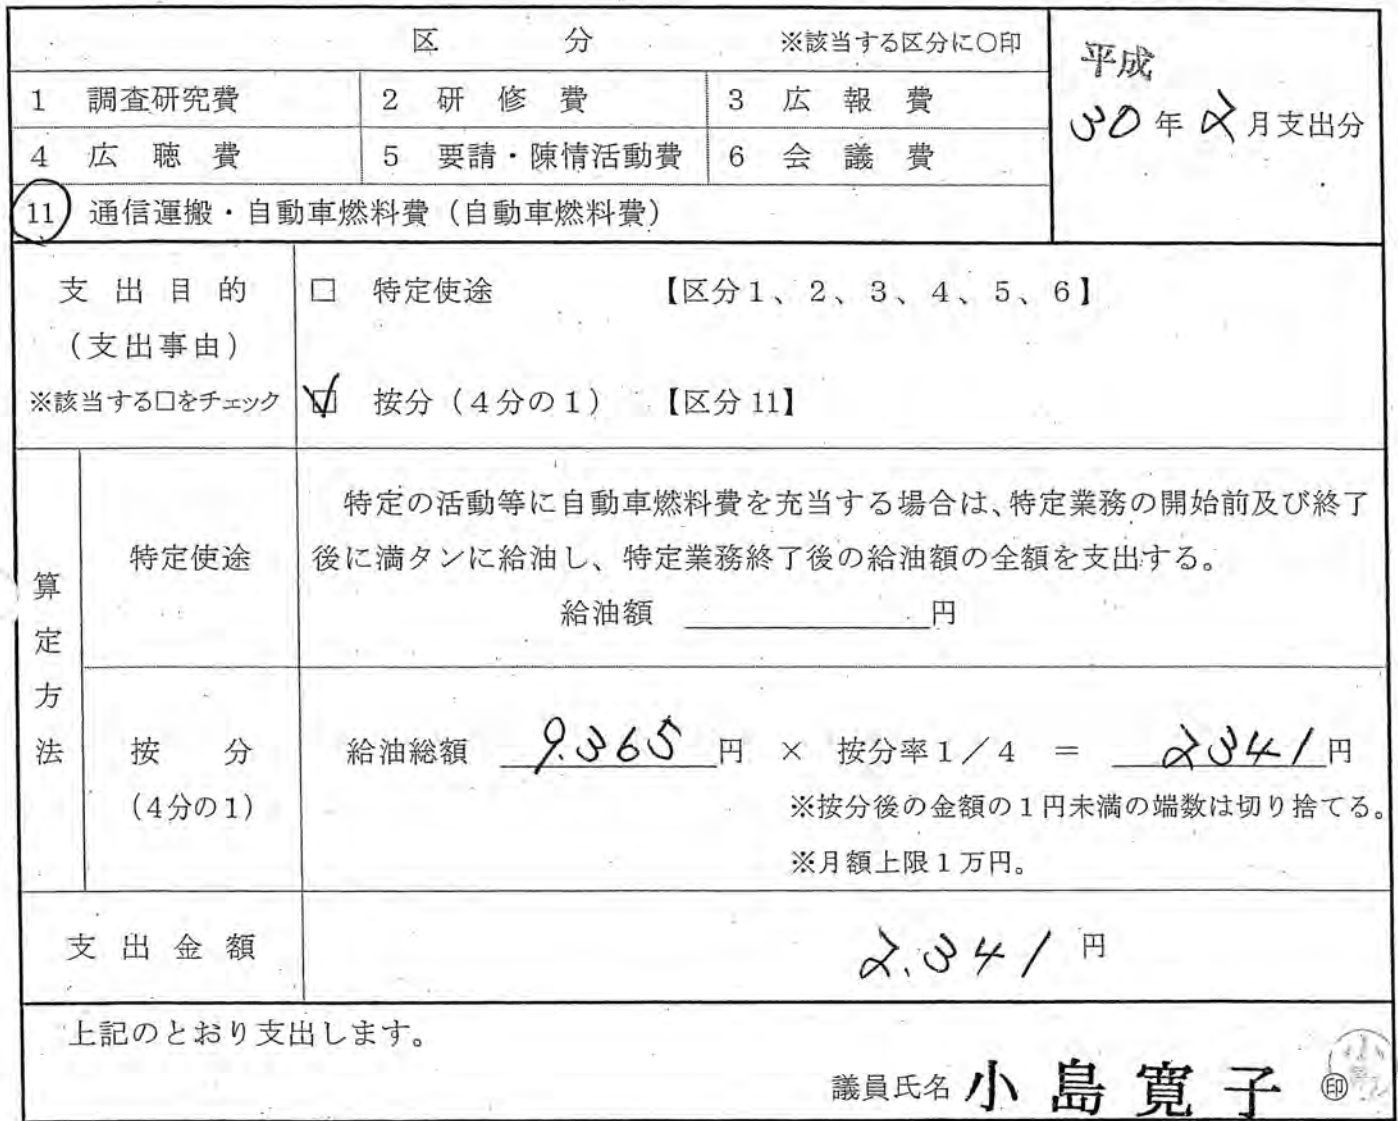 区 分 ※該当する区分に〇印
平成
30年2月支出分
1 調査研究費 2 研修費 3 広報費
4 広聴費 5 要請・陳情活動費 6 会議費
11 通信運搬・自動車燃料費(自動車燃料費)
支出目的
(支出事由)
※該当する□をチェック
□ 特定使途 【区分1、2、3、4、5、6】
☑ 按分(4分の1) 【区分11】
算定方法
特定使途
特定の活動等に自動車燃料費を充当する場合は、特定業務の開始前及び終了
後に満タンに給油し、特定業務終了後の給油額の全額を支出する。
給油額 円
按分
(4分の1)
給油総額 9.365円 × 按分率1/4 = 2341円
※按分後の金額の1円未満の端数は切り捨てる。
※月額上限1万円。
支出金額 2.341円
上記のとおり支出します。
議員氏名 小島寛子 ㊞